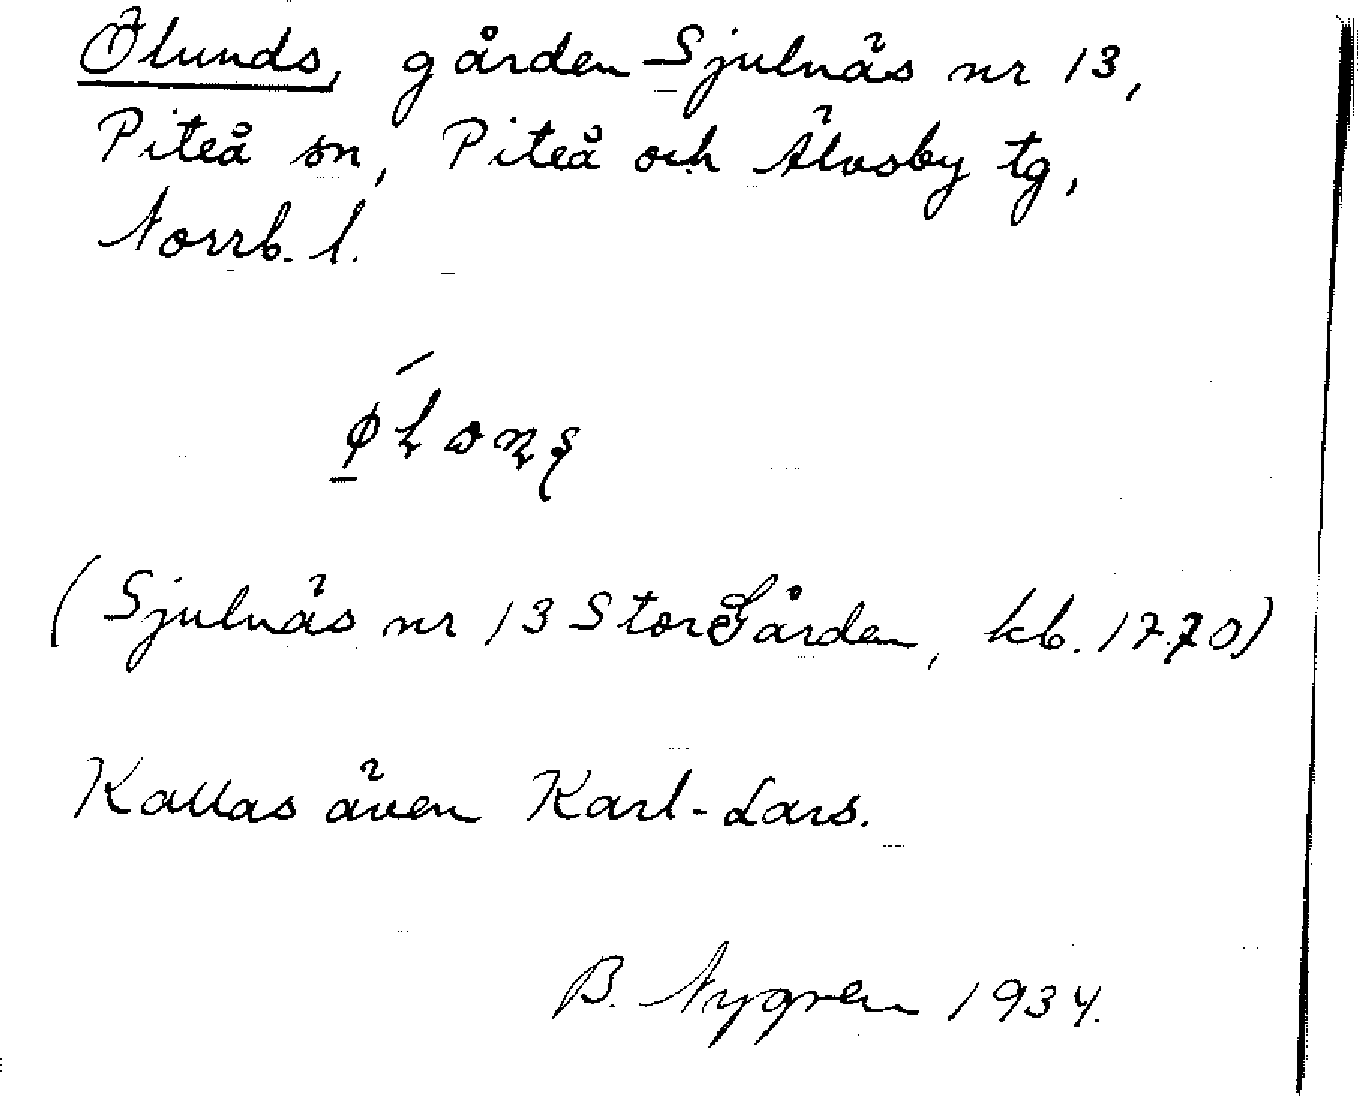 Ölunds, gården Sjulnäs nr 13,
Piteå sn, Piteå och Älvsby tg,
Norrb. l.
(Sjulnäs nr 13 StorGården, kb. 1770)
Kallas även Karl-Lars.
B. Nygren 1934.